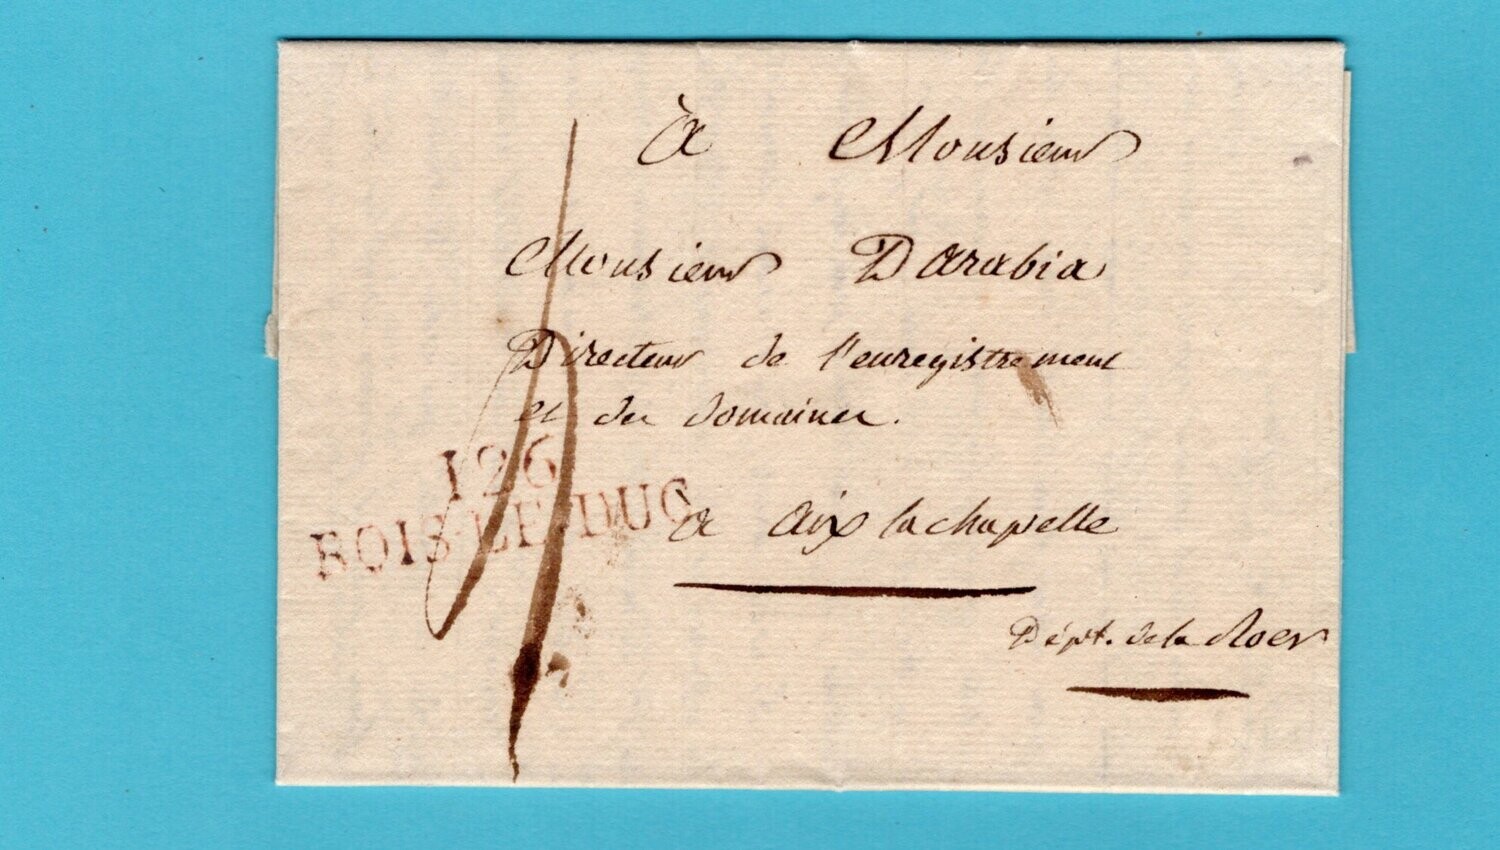 à Monsieur
Monsieur Darabia
Directeur de l'enregistrement
et des domaines.
126
BOIS-LE-DUC
à Aix la chapelle
Dépt. de la Roer